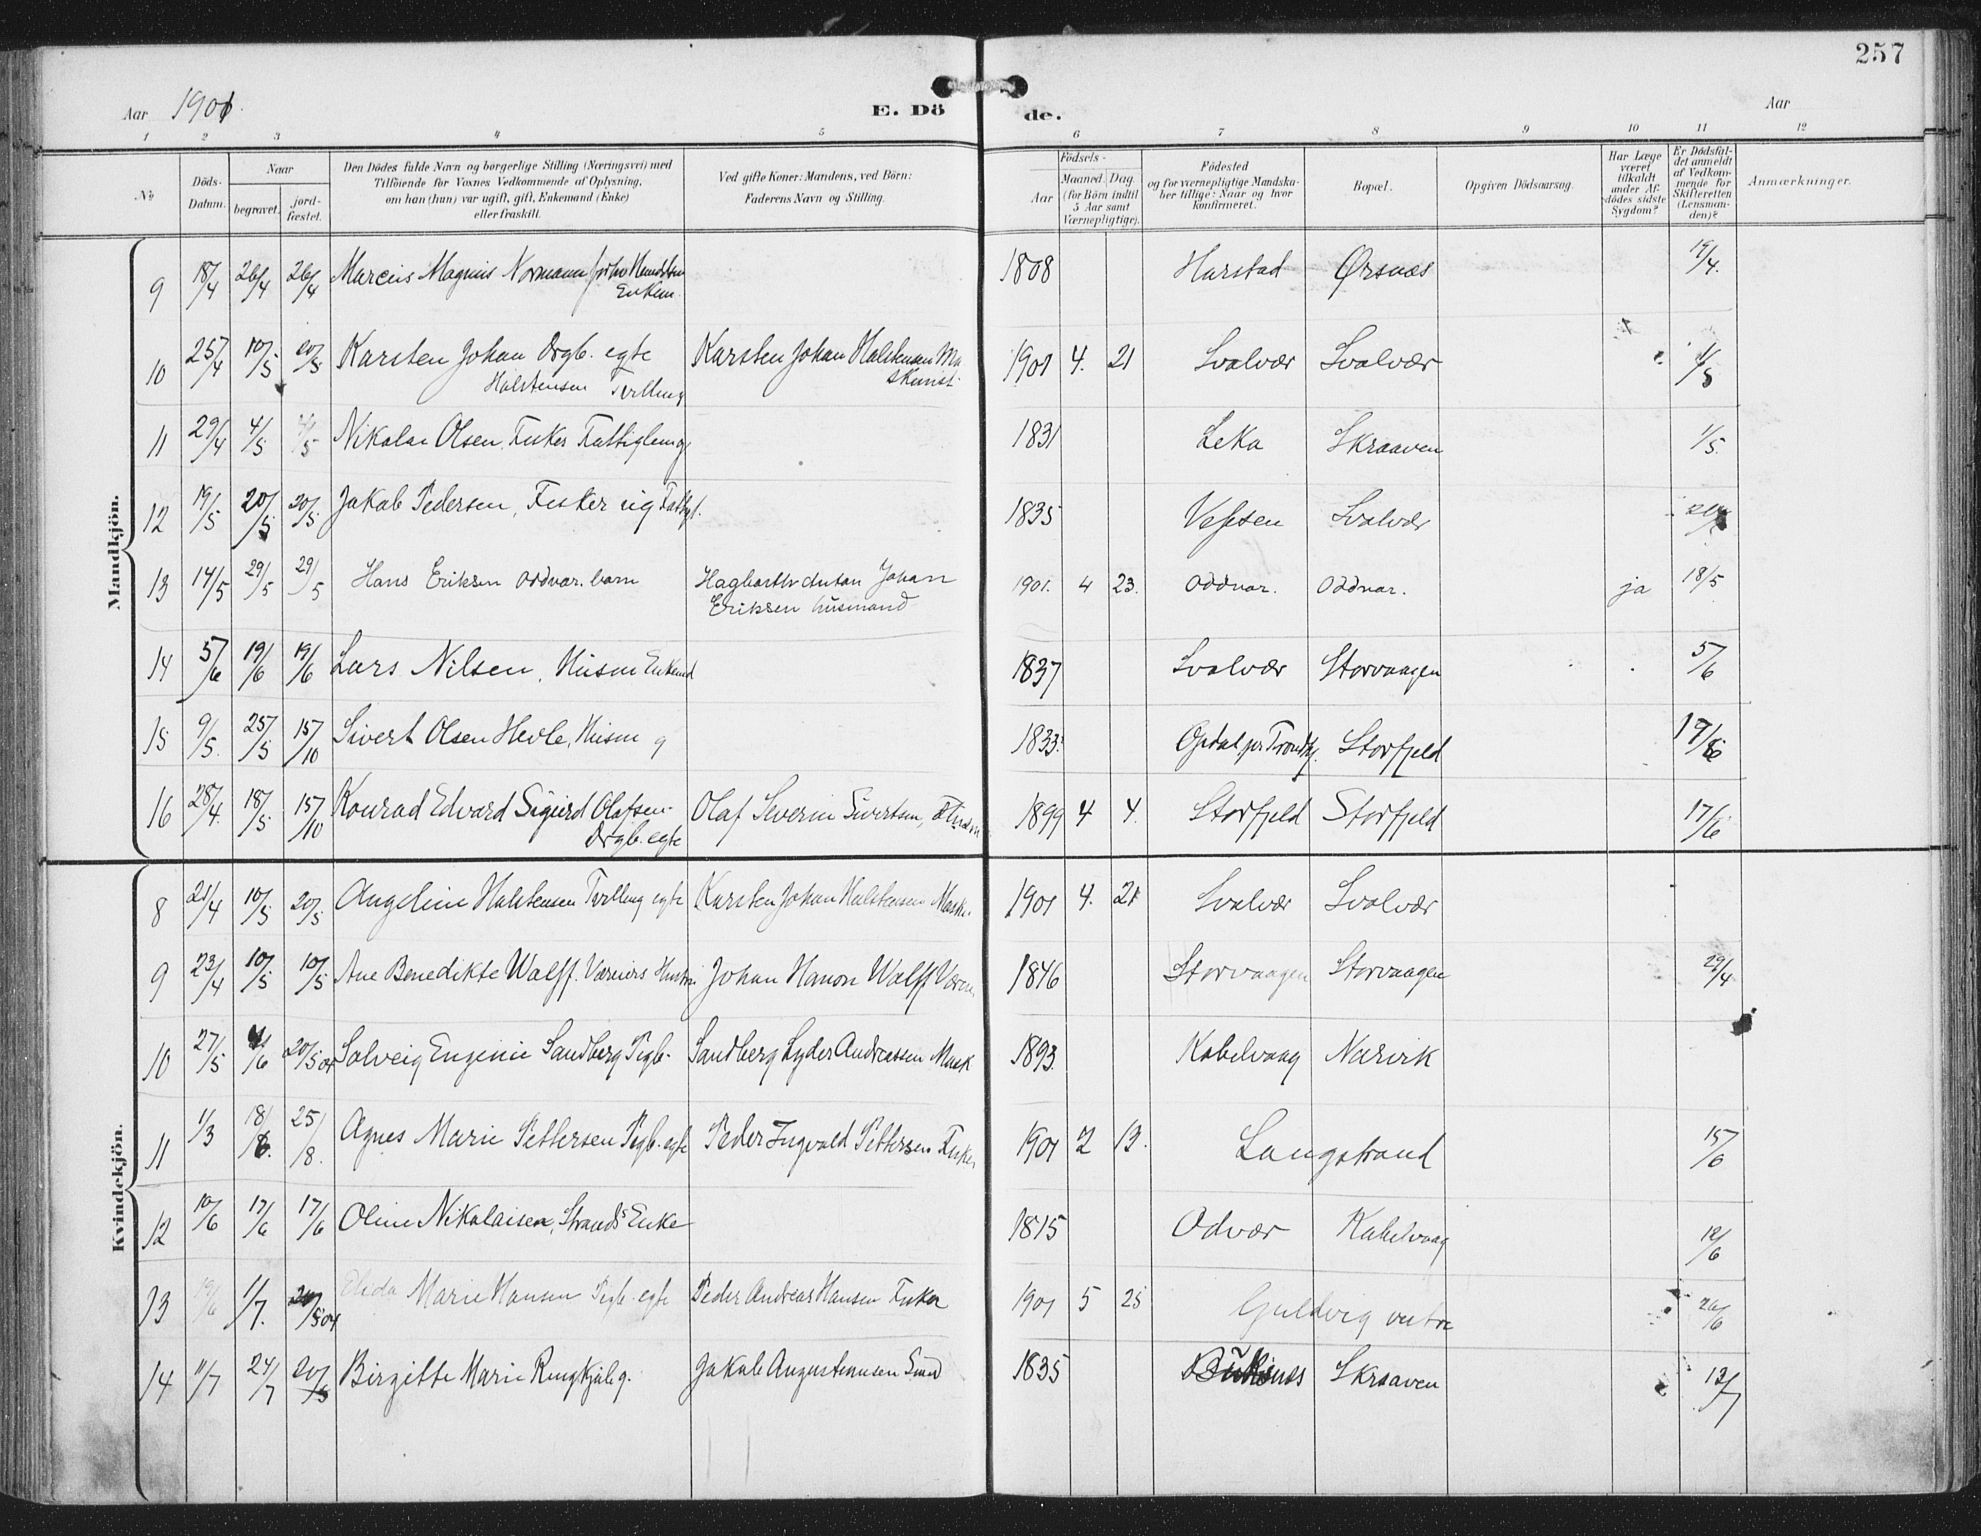 257
Aar 1901.
E. Dö
de.
Aar
1 2 3 4 5 6 7 8 9 10 11 12
No
Döds-
Datum.
Naar
begravet.
jord-
fæstet.
Den Dödes fulde Navn og borgerlige Stilling (Næringsvei) med
Tilföiende for Voxnes Vedkommende af Oplysning,
om han (hun) var ugift, gift, Enkemand (Enke)
eller fraskilt.
Ved gifte Koner: Mandens, ved Börn:
Faderens Navn og Stilling.
Födsels-
Aar
Maaned. Dag.
(for Börn indtil
5 Aar samt
Værnepligtige).
Födested
og for værnepligtige Mandska-
ber tillige: Naar og hvor
konfirmeret.
Bopæl.
Opgiven Dödsaarsag.
Har Læge
været
tilkaldt
under Af-
dödes sidste
Sygdom?
Er Dödsfal-
det anmeldt
af Vedkom-
mende for
Skifteretten
(Lensman-
den)?
Anmærkninger.
Mandkjön.
9 18/4 26/4 26/4 Marcus Magnus Normann 1808 Harstad Ørsnæs 19/4.
Enkem.
10 25/4 10/5 20/5 Karsten Johan Drgb. egte Karsten Johan Halstensen Ma 1901 4. 21 Svolvær Svolvær 1/5
Halstensen Tvilling skinist.
11 29/4 4/5 4/5 Nikolai Olsen, Fisker Fattiglem g 1831 Leka Skraaven 1/5.
12 19/5 20/5 20/5. Jakob Pedersen, Fisker ug Fattigl. 1835 Vefsen Svolvær
13 14/5 29/5 29/5 Hans Eriksen Oddvær. barn Hagbarth Anton Johan 1901. 4 23. Oddvær. Oddvær. ja 18/5
Eriksen husmand
14 5/6 19/6 19/6 Lars Nilsen, Husm Enkemd 1837 Svolvær Storvaagen 5/6
15 9/5. 25/5 15/10 Sivert Olsen Hevle, Husm g 1833. Opdal pr Trondhj. Storfjeld 17/6
16 28/4. 18/5 15/10 Konrad Edvard Sigurd Olafsen Olaf Severin Sivertsen, 1899 4 4. Storfjeld Storfjeld 17/6
Drgb. egte
Kvindekjön.
8 21/4 10/5 20/5 Angeline Halstensen Tvilling egte Karsten Johan Halstensen Mask. 1901 4. 21 Svolvær Svolvær
9 23/4 10/5 10/5 Ane Benedikte Wolff. Væreiers Hustru Johan Hanon Wolff Værei 1846 Storvaagen Storvaagen 29/4
10 27/5 4/6 20/5 04 Solveig Eugenie Sandberg Pigb. Sandberg Lyder Andreassen Mask 1893. Kabelvaag Narvik
11 1/3 18/6. 25/8. Agnes Marie Pettersen Pigb. egte Peder Ingvald Pettersen Fisker 1901 2 13. Langstrand 15/6
12 10/6 17/6 17/6 Oline Nikolaisen, Strands Enke 1815 Odvær Kabelvaag 12/6
13 19/6 1/7. 20/5 04 Elida Marie Hansen Pigb. egte Peder Andreas Hansen Fisker 1901 5 25 Guldvig vestre 26/6
14 11/7 24/7 20/5 Birgitte Marie Ringkjøb g. Jakob Augustinusen Sund 1835 Buksnes Skraaven 12/7